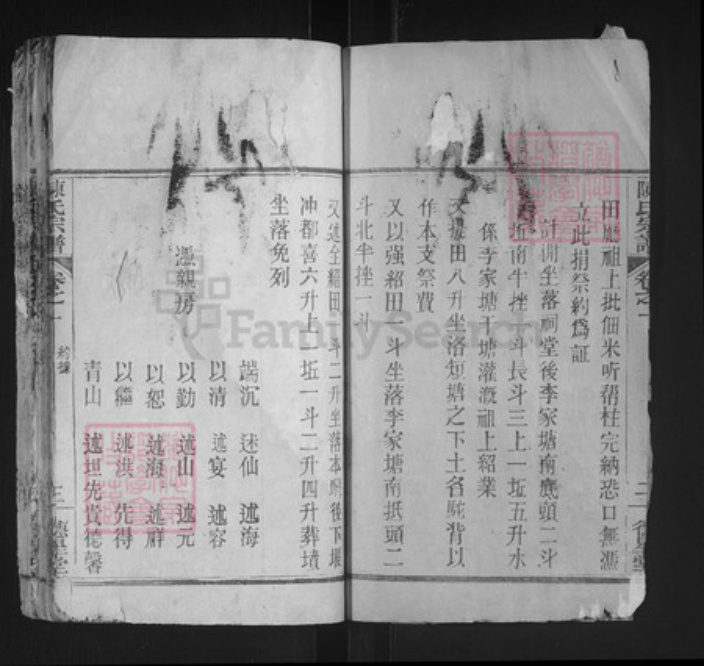 陳氏宗譜
卷之一
田廳祖上批佃米听幇柱完納恐口無憑
立此捐祭約為証
計開坐落祠堂後李家塘南底頭二斗
坵南牛挫一斗長斗三上一坵五升水
係李家塘干塘灌溉祖上紹業
又捐田八升坐洛短塘之下土名駝背以
作本支祭費
又以强紹田一斗坐落李家塘南抵頭二
斗北半挫一斗
又述全紹田一斗二升坐落本祠後下堰
冲都喜六升上一坵一斗二升四升葬墳
坐落免列
憑親房
端沉 述仙 述海
以清 述宴 述容
以勤 述山 述元
以恕 述海 述群
以繼 述洪 先得
青山 述坦 先貴 德馨
陳氏宗譜
卷之一
約據
三
FamilySearch